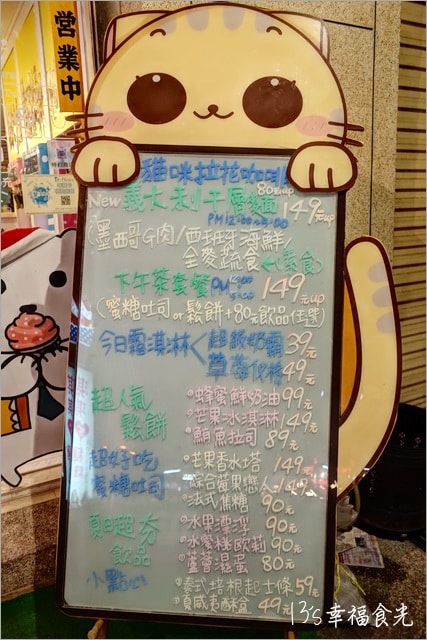 營業中
貓咪拉花咖啡 80元up
New 義大利千層麵 149元up
PM12:00
(墨西哥G肉/西班牙海鮮/
全麥蔬食←(素食)
下午茶套餐PM 149元up
(蜜糖吐司or鬆餅+80元飲品任選)
今日霜淇淋< 超級奶霸39元
草莓 49元
超人氣
鬆餅
•蜂蜜鮮奶油99元
•芒果冰淇淋149元
•鮪魚拉司89元
超好吃
蜜糖吐司
•芒果香水塔149元
綜合莓果戀人149元
•法式焦糖90元
夏日超夯
飲品
•水果漂浮90元
•水蜜桃歐莉90元
•蘆薈滋蛋80元
小點心
•泰式培根起士條59元
•夏威夷酥盒49元
13's幸福食光